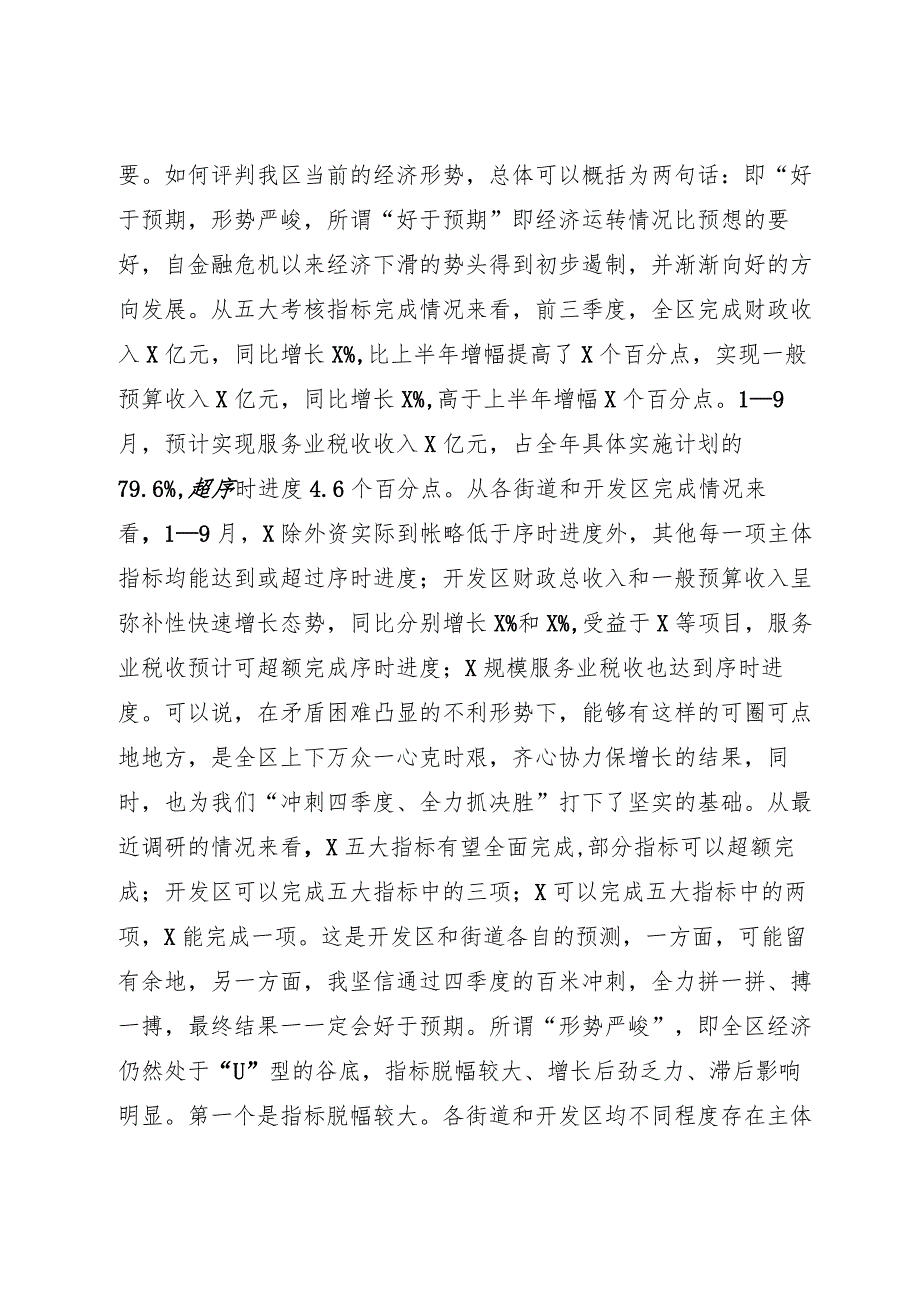 要。如何评判我区当前的经济形势，总体可以概括为两句话：即“好
于预期，形势严峻，所谓“好于预期”即经济运转情况比预想的要
好，自金融危机以来经济下滑的势头得到初步遏制，并渐渐向好的方
向发展。从五大考核指标完成情况来看，前三季度，全区完成财政收
入 X 亿元，同比增长 X%,比上半年增幅提高了 X 个百分点，实现一般
预算收入 X 亿元，同比增长 X%,高于上半年增幅 X 个百分点。1—9
月，预计实现服务业税收收入 X 亿元，占全年具体实施计划的
79.6%,超序时进度 4.6 个百分点。从各街道和开发区完成情况来
看，1—9 月，X 除外资实际到帐略低于序时进度外，其他每一项主体
指标均能达到或超过序时进度；开发区财政总收入和一般预算收入呈
弥补性快速增长态势，同比分别增长 X%和 X%,受益于 X 等项目，服务
业税收预计可超额完成序时进度；X 规模服务业税收也达到序时进
度。可以说，在矛盾困难凸显的不利形势下，能够有这样的可圈可点
地地方，是全区上下万众一心克时艰，齐心协力保增长的结果，同
时，也为我们“冲刺四季度、全力抓决胜”打下了坚实的基础。从最
近调研的情况来看，X 五大指标有望全面完成,部分指标可以超额完
成；开发区可以完成五大指标中的三项；X 可以完成五大指标中的两
项，X 能完成一项。这是开发区和街道各自的预测，一方面，可能留
有余地，另一方面，我坚信通过四季度的百米冲刺，全力拼一拼、搏
一搏，最终结果一一定会好于预期。所谓“形势严峻”，即全区经济
仍然处于“U”型的谷底，指标脱幅较大、增长后劲乏力、滞后影响
明显。第一个是指标脱幅较大。各街道和开发区均不同程度存在主体